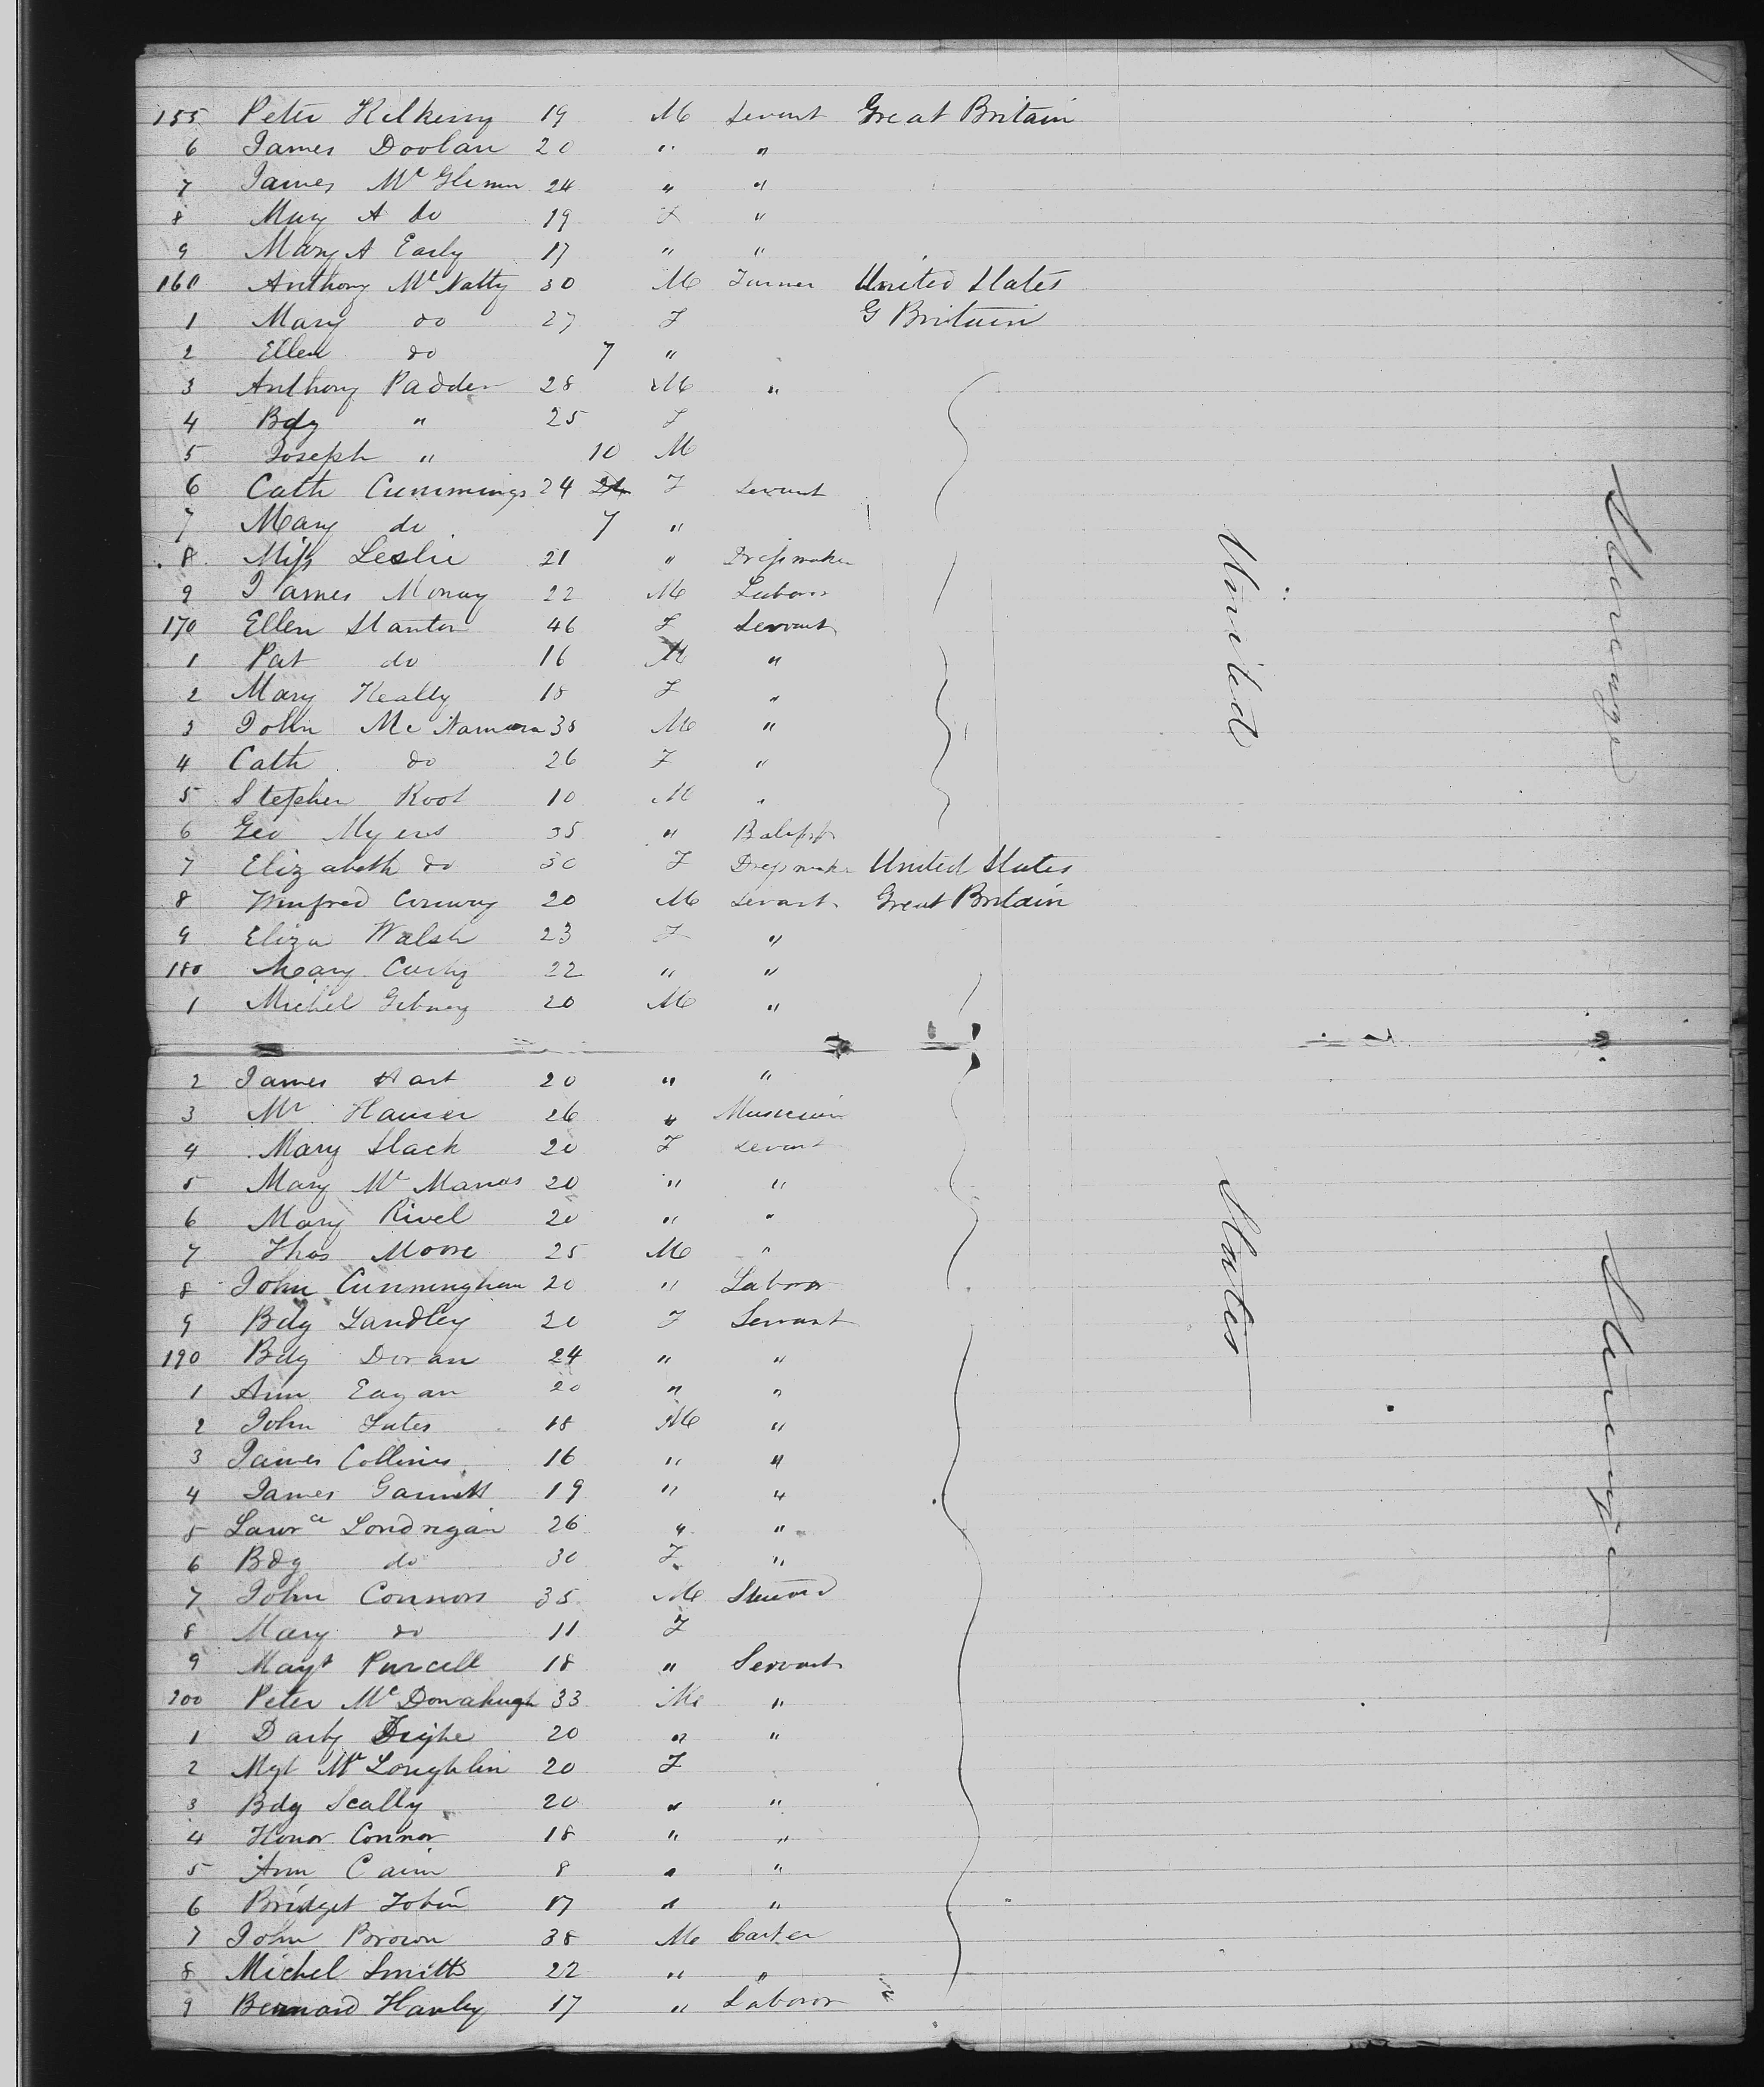 155 Peter Kilkenny 19 M Servant Great Britain
6 James Doolan 20 " "
7 James Mc Glenn 24 " "
8 Mary A do 19 F "
9 Mary A Early 17 " "
160 Anthony Mc Natty 30 M Farmer United States
1 Mary do 27 F G Britain
2 Ellen do 7 "
3 Anthony Padden 28 M "
4 Bdg " 25 F
5 Joseph " 10 M
6 Cath Cummings 24 F Servant
7 Mary do 7 "
8 Miss Leslie 21 " Dressmaker
9 James Monay 22 M Labour
170 Ellen Stanton 46 F Servant
1 Pat do 16 M "
2 Mary Keally 18 F "
3 John Mc Namara 35 M "
4 Cath do 26 F "
5 Stephen Root 10 M "
6 Geo Myers 35 "
7 Elizabeth do 30 F Dressmaker United States
8 Winfred Conway 20 M Servant Great Britain
9 Eliza Walsh 23 F "
180 Mary Curly 22 " "
1 Michel Gibney 20 M "
2 James Hart 20 " "
3 Mr Hauser 26 " Musician
4 Mary Slack 20 F Servant
5 Mary Mc Manus 20 " "
6 Mary Rivel 20 " "
7 Thos Moore 25 M "
8 John Cunningham 20 " Labour
9 Bdg Landley 20 F Servant
190 Bdg Doran 24 " "
1 Ann Eagan 20 " "
2 John 18 M "
3 James Collins 16 " "
4 James Garnett 19 " "
5 Lawrce Londrigan 26 " "
6 Bdg do 30 F "
7 John Connors 35 M Steward
8 Mary do 11 F
9 Magt Purcell 18 " Servant
200 Peter Mc Donahugh 33 M "
1 Darby Tighe 20 " "
2 Mgt Mc Loughlin 20 F
3 Bdg Scally 20 " "
4 Honor Connor 18 " "
5 Ann Cain 8 " "
6 Bridget Tobin 17 " "
7 John Brown 38 M Carter
8 Michel Smith 22 " "
9 Bernard Hanley 17 " Laboror
United States
Steerage
Steerage